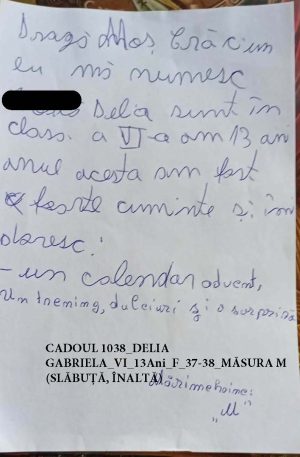 Dragă Moș Crăciun
eu mă numesc
Delia sunt în
clasa a VI-a am 13 ani
anul acesta am fost
foarte cuminte și îmi
doresc:
- un calendar advent,
un trening, dulciuri și o surpriză
CADOUL 1038_DELIA
GABRIELA_VI_13Ani_F_37-38_MĂSURA M
(SLĂBUȚĂ, ÎNALTĂ)
Mărimehaine:
"M"